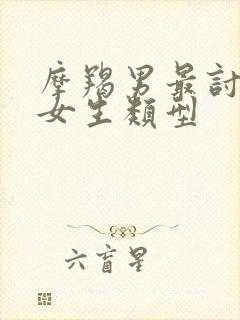 摩羯男最討
女生類型
六盲星